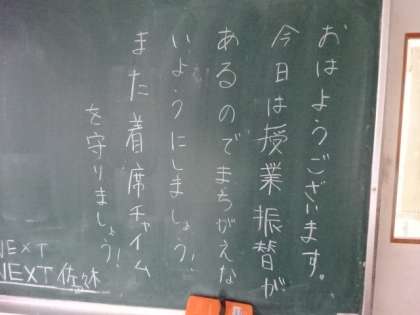 おはようございます。
今日は授業振替が
あるのでまちがえな
いようにしましょう!
また着席チャイム
を守りましょう!
NEXT
NEXT 佐々木